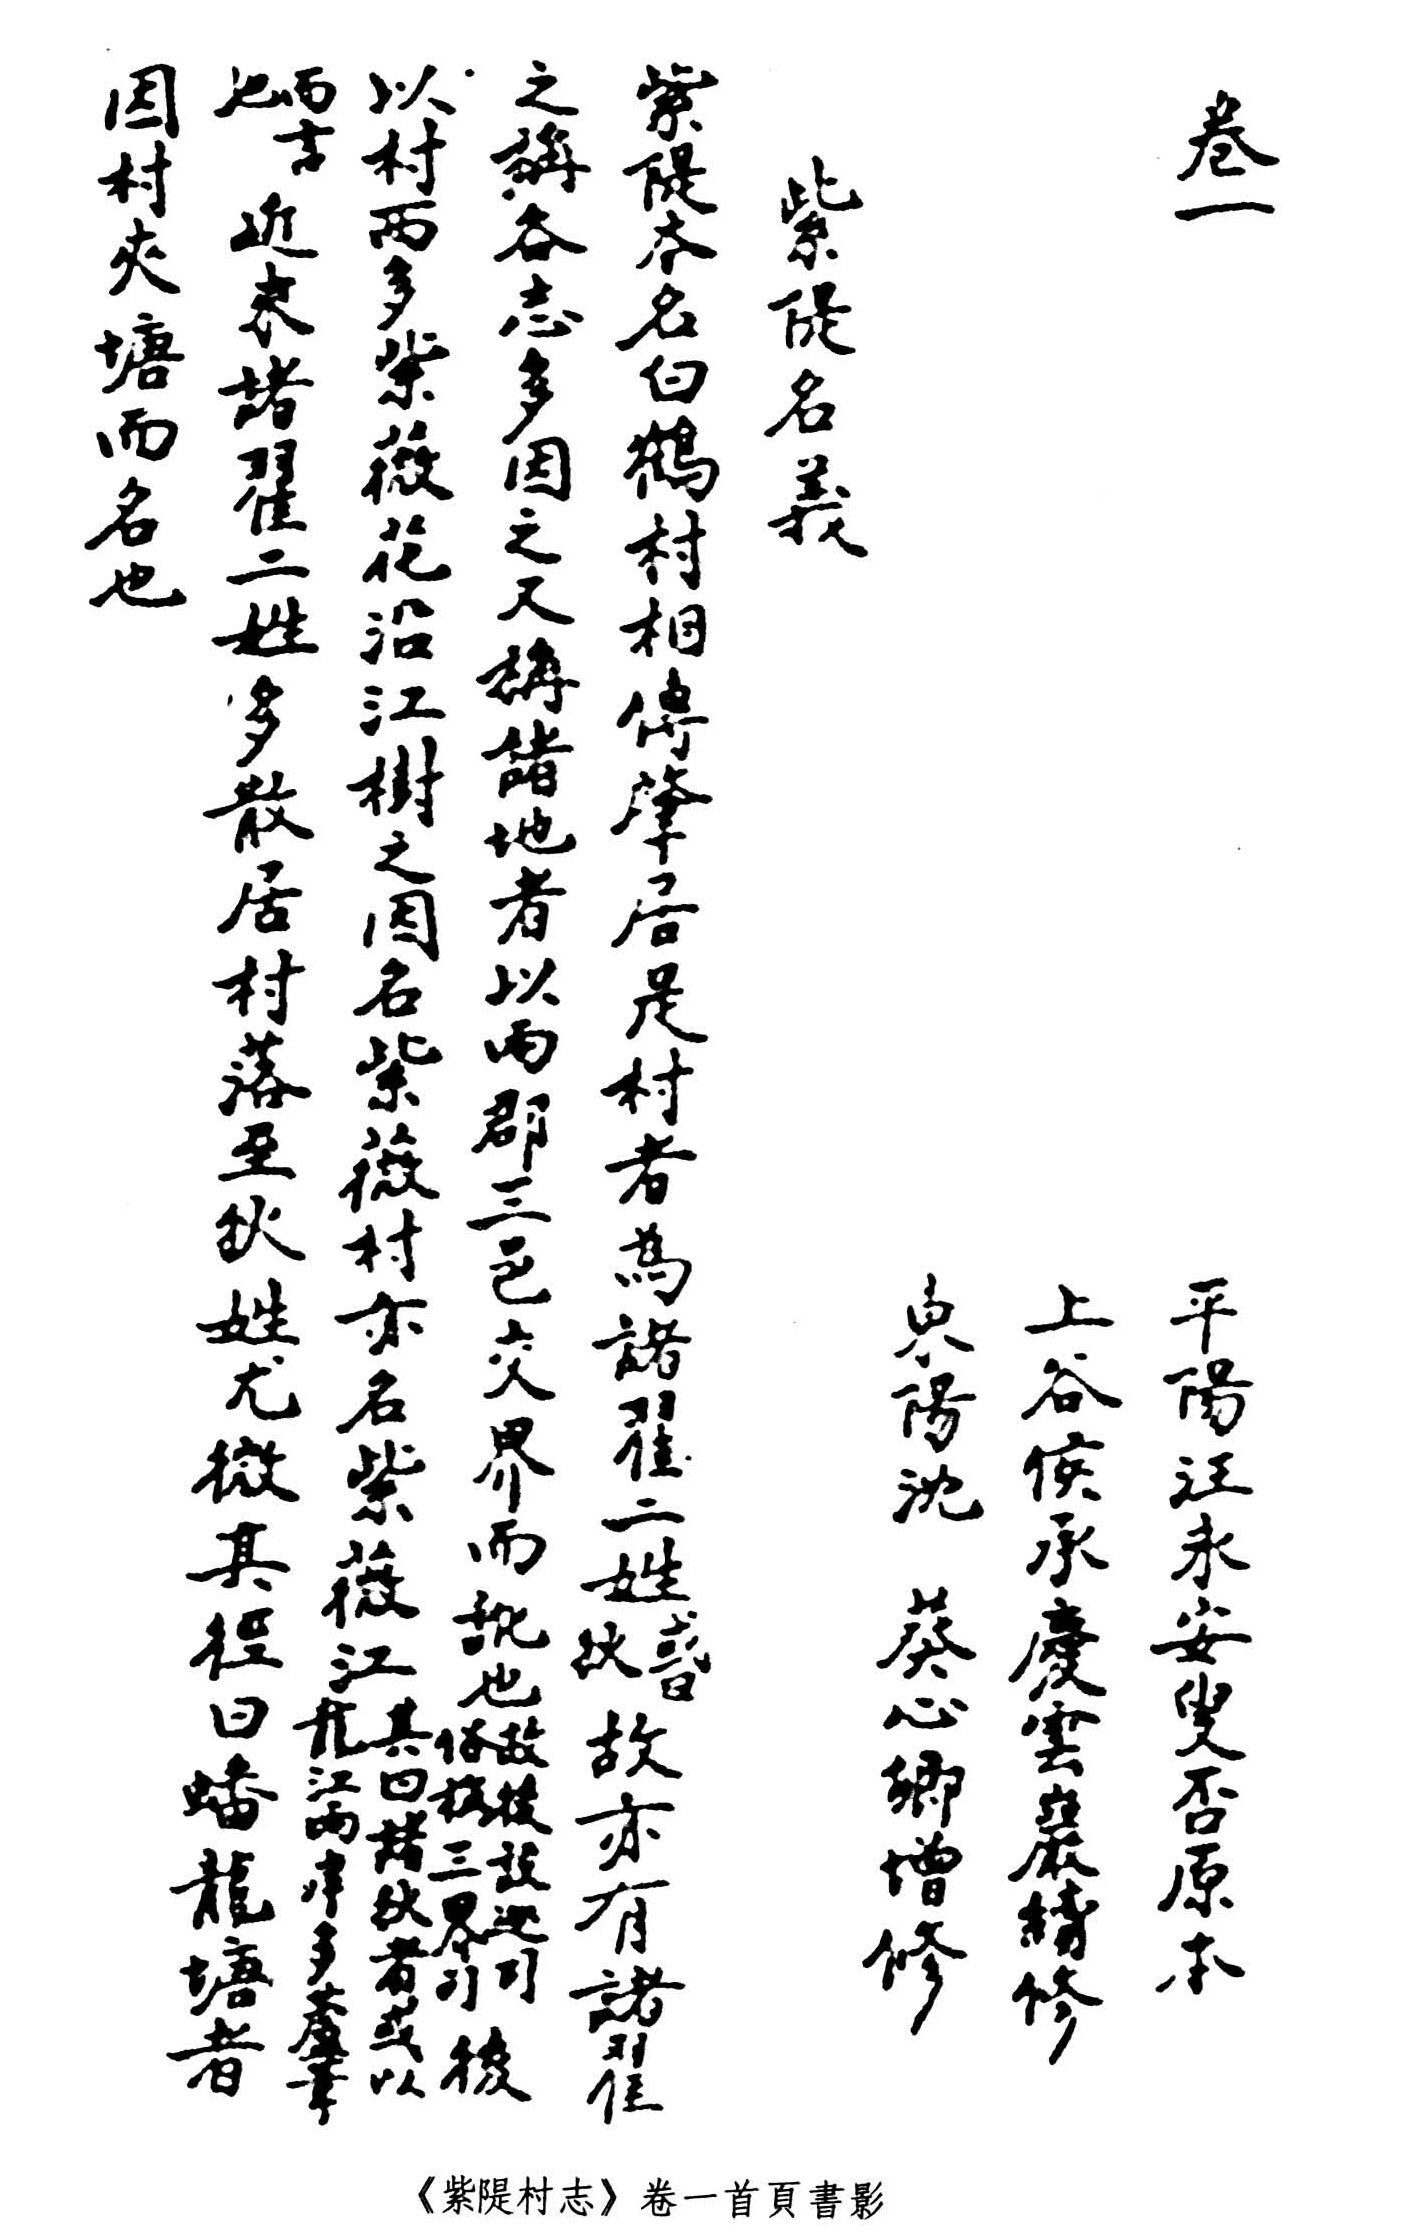 卷一
平陽汪永安叟否原本
上谷侯承慶雲巖續修
東陽沈　葵心卿增修
紫隄名義
紫隄本名白鶴村相傳肇居是村者為諸翟二姓翟或音狄故亦有諸翟
之稱各志多因之又稱諸地者以兩郡三邑交界而訛也故後設巡司俗稱三界司後
以村西多紫薇花沿江樹之因名紫薇村亦名紫薇江其曰諸狄者或以龍江兩岸多蘆葦
而言也近來諸翟二姓多散居村落至狄姓尤微其徑曰蟠龍塘者
因村夾塘而名也
《紫隄村志》卷一首頁書影